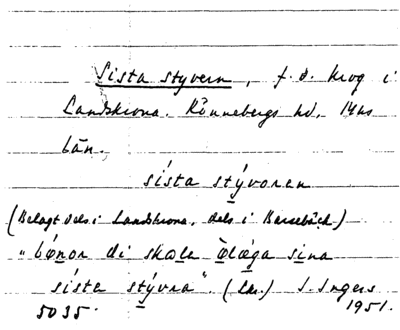 Sista styvern, f.d. krog i
Landskrona. Rönnebergs hd,
län.
sísta stývoren
(Belagt dels i Landskrona, dels i Barsebäck)
" di skola sina
sísta stývra". (Lkr.) I. Ingers
5035. 1951.